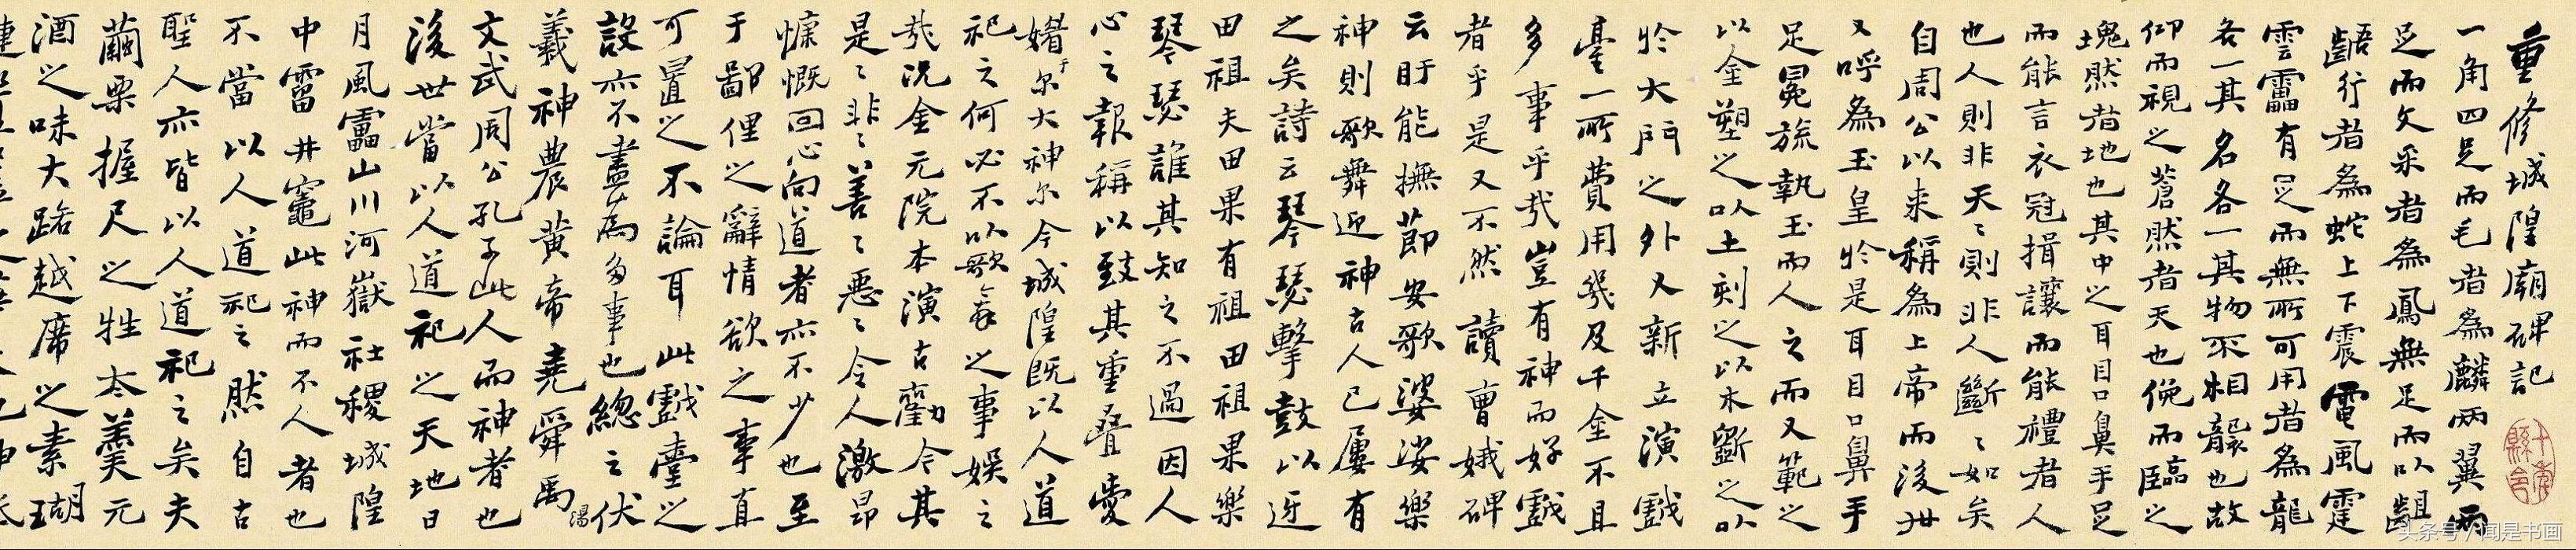 重修城隍廟碑記
一角四足而毛者為麟兩翼兩
足而文采者為鳳無足而以齟
齬行者為蛇上下震電風霆
雲靁有足而無所可用者為龍
各一其名各一其物不相襲也故
仰而視之蒼然者天也俛而臨之
塊然者地也其中之耳目口鼻手足
而能言衣冠揖讓而能禮者人
也人則非天〻則非人斷〻如矣
自周公以來稱為上帝而後世
又呼為玉皇於是耳目口鼻手
足冕旒執玉而人之而又範之
以金塑之以土刻之以木斵之以
於大門之外又新立演戲
臺一所費用幾及千金不且
多事乎哉豈有神而好戲
者乎是又不然讀曹娥碑
云盱能撫節安歌婆娑樂
神則歌舞迎神古人已屢有
之矣詩云琴瑟擊鼓以迓
田祖夫田果有祖田祖果樂
琴瑟誰其知之不過因人
心之報稱以致其重疊愛
媚于尔大神尔今城隍既以人道
祀之何必不以歌舞之事娛之
哉況金元院本演古勸今其
是〻非〻善〻惡〻令人激昂
慷慨回心向道者亦不少也至
于鄙俚之辭情欲之事直
可置之不論耳此戲臺之
設亦不盡為多事也總之伏
羲神農黃帝堯舜禹湯
文武周公孔子此人而神者也
後世當以人道祀之天地日
月風靁山川河嶽社稷城隍
中霤井竈此神而不人者也
不當以人道祀之然自古
聖人亦皆以人道祀之矣夫
繭栗握尺之牲太羹元
酒之味大路越席之素瑚
头条号 / 闻是书画